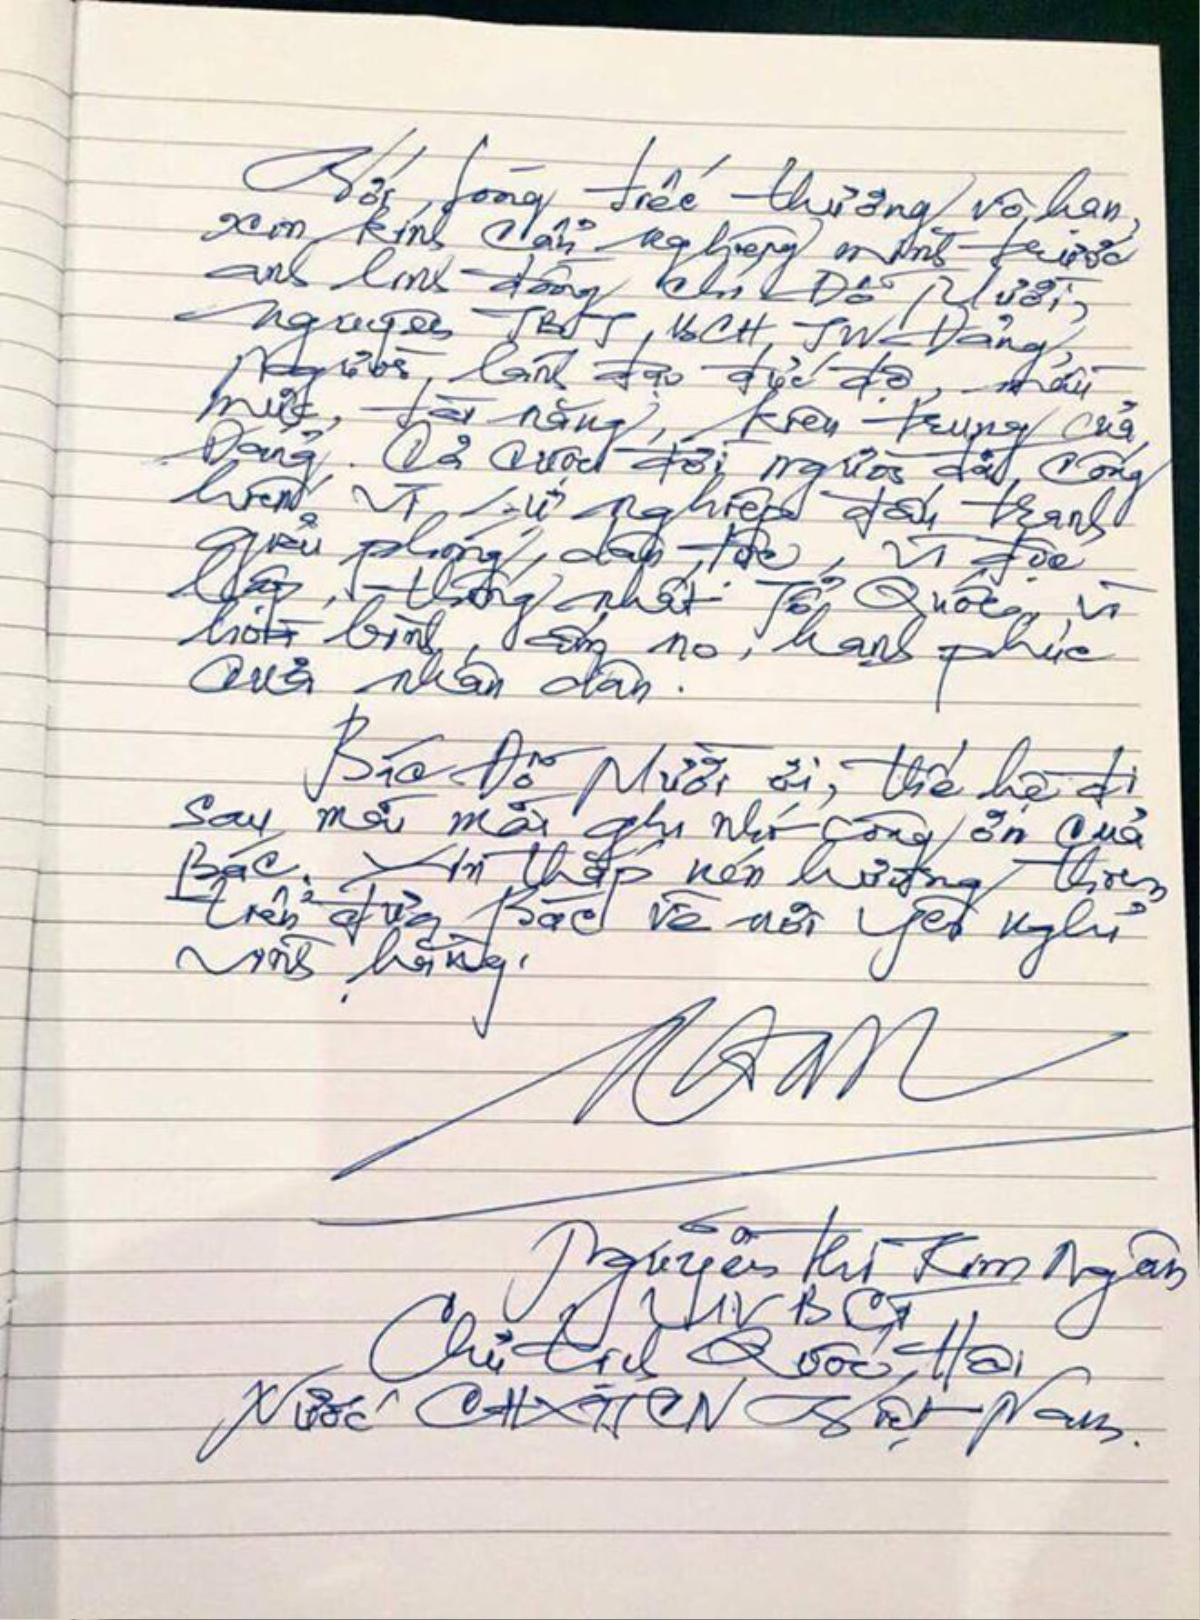 Với lòng tiếc thương vô hạn,
xin kính cẩn nghiêng mình trước
anh linh đồng chí Đỗ Mười,
Nguyên TBT, BCH TW Đảng,
Người lãnh đạo đức độ, mẫu
mực, tài năng, kiên trung của
Đảng. Cả cuộc đời người đã cống
hiến vì sự nghiệp đấu tranh
giải phóng dân tộc, vì độc
lập, thống nhất Tổ Quốc, vì
hoà bình, ấm no, hạnh phúc
của nhân dân.
Bác Đỗ Mười ơi, thế hệ đi
sau mãi mãi ghi nhớ công ơn của
Bác. Xin thắp nén hương thơm
tiễn đưa Bác về nơi yên nghỉ
vĩnh hằng.
Ngân
Nguyễn Thị Kim Ngân
UVBCT
Chủ tịch Quốc Hội
Nước CHXHCN Việt Nam.